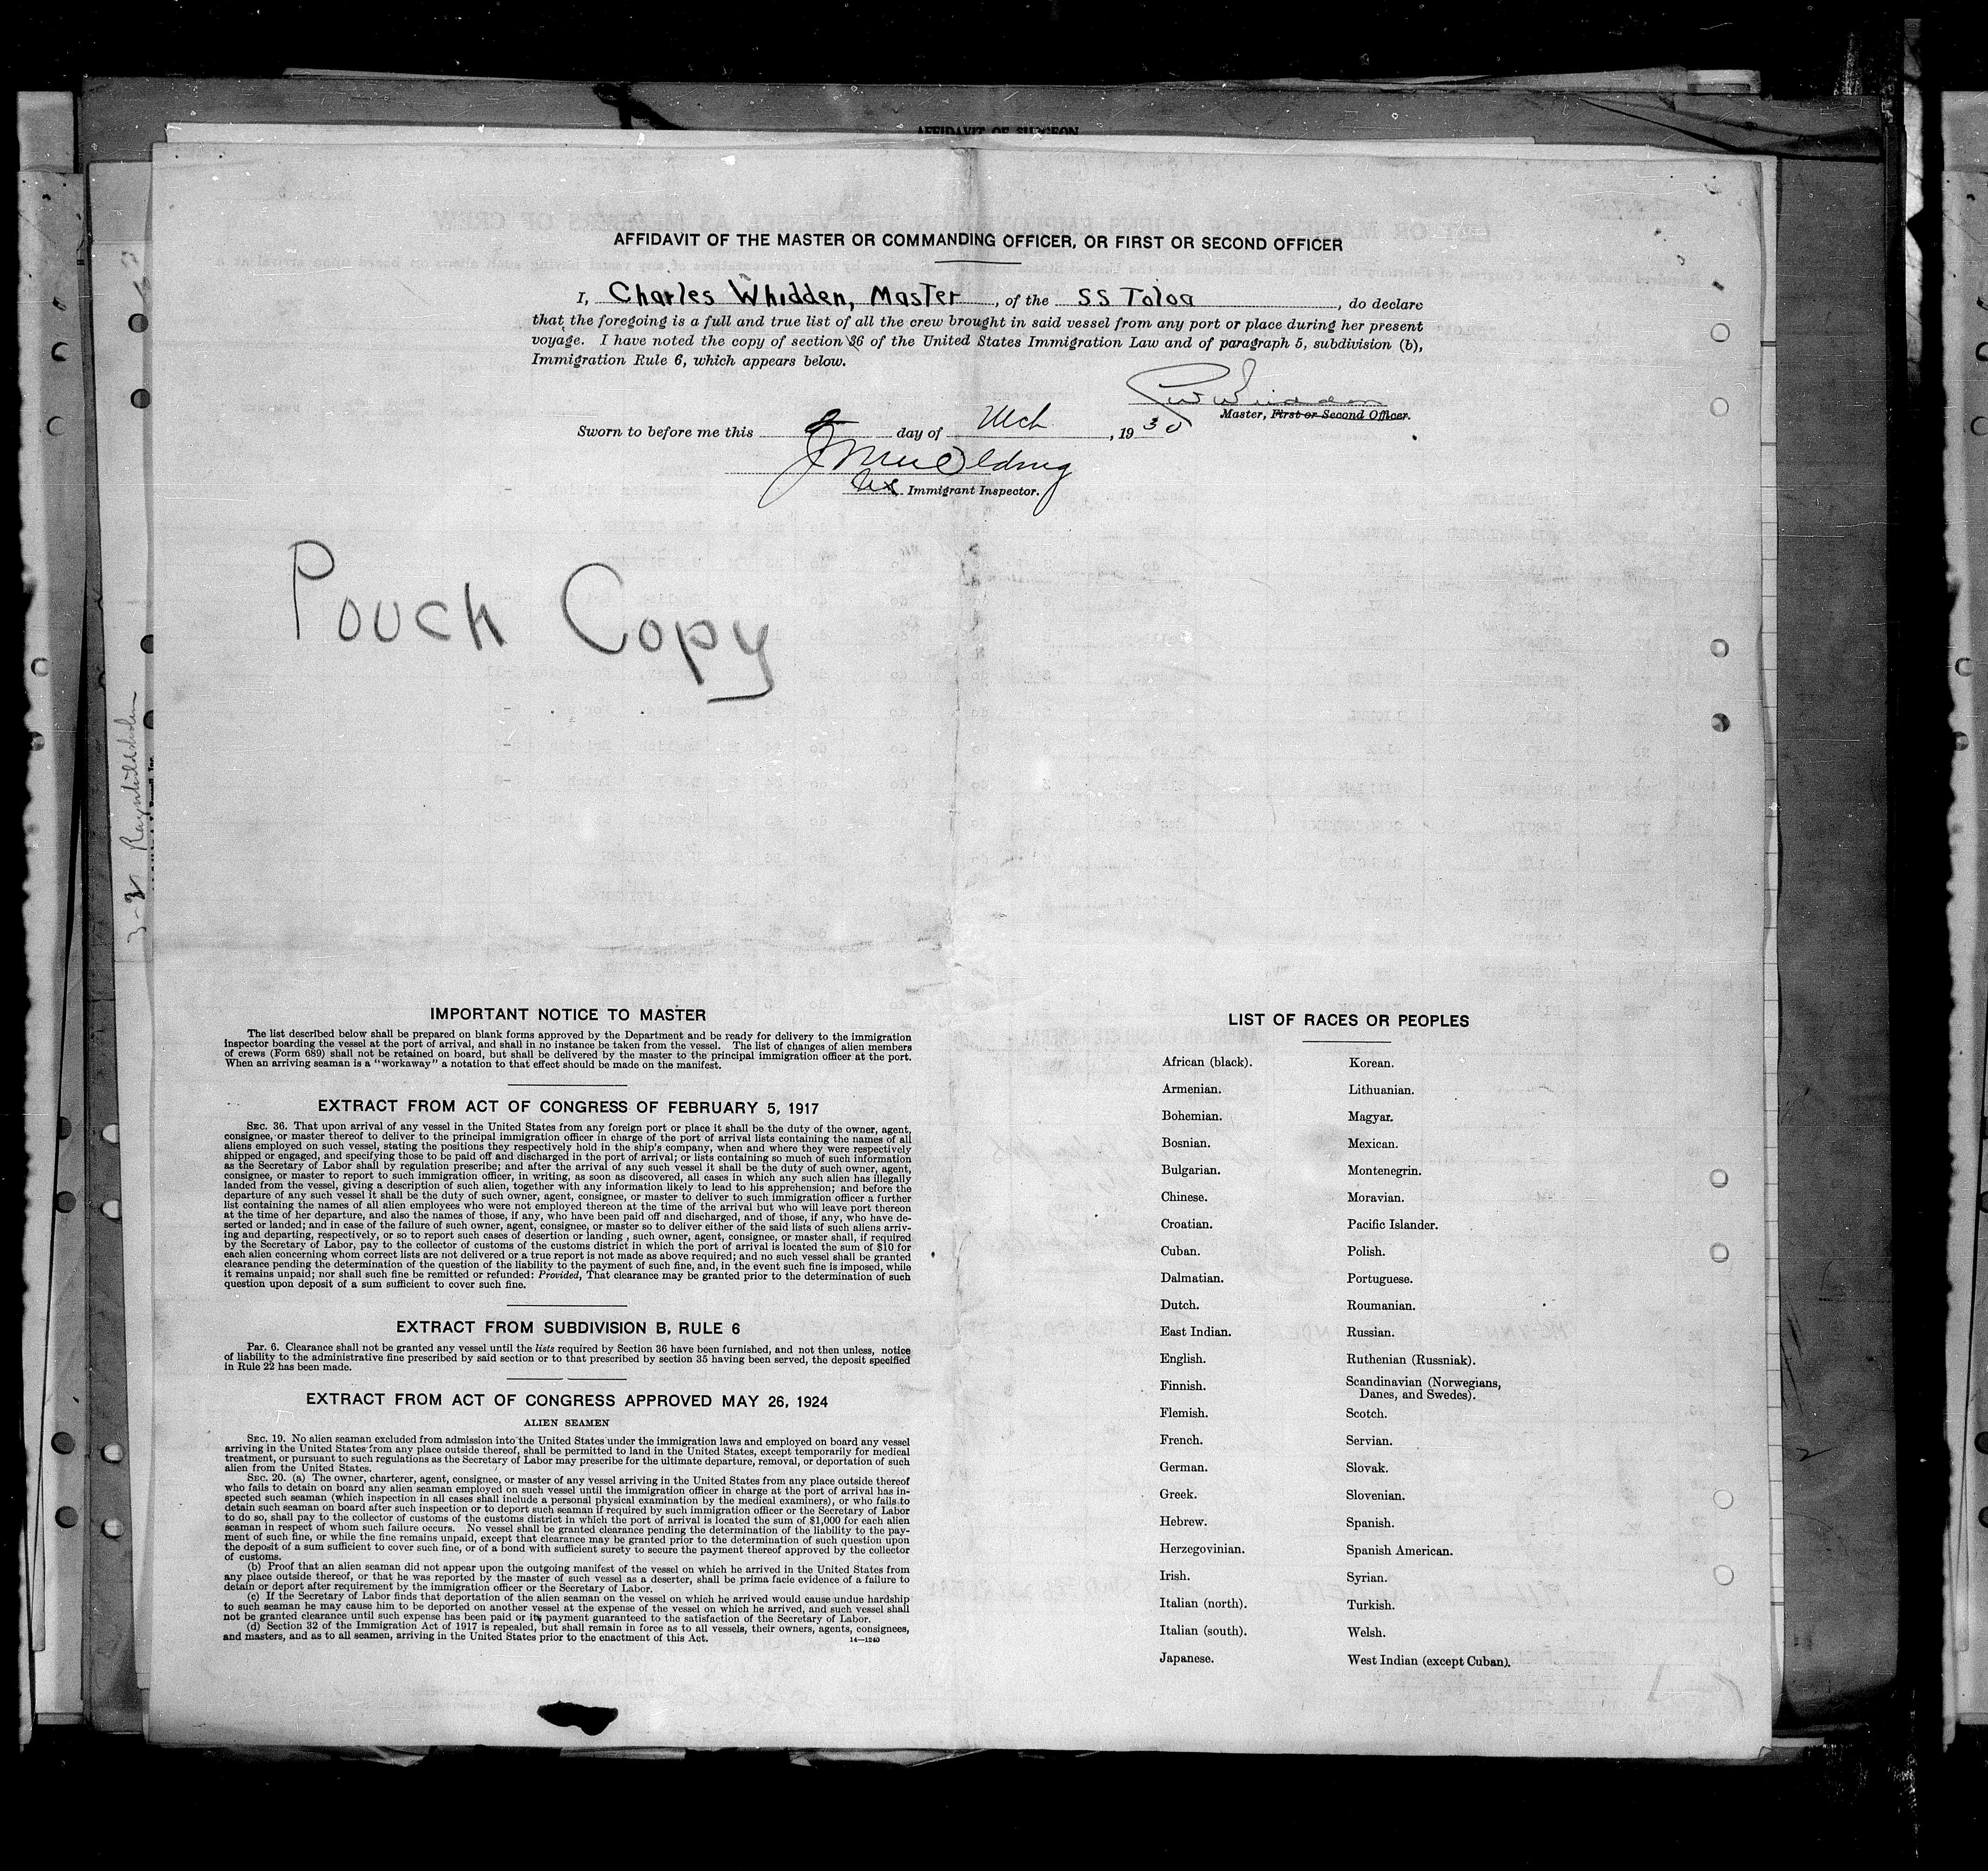 AFFIDAVIT OF SURGEON
AFFIDAVIT OF THE MASTER OR COMMANDING OFFICER, OR FIRST OR SECOND OFFICER
I, Charles Whidden, Master, of the SS Toloa, do declare
that the foregoing is a full and true list of all the crew brought in said vessel from any port or place during her present
voyage. I have noted the copy of section 36 of the United States Immigration Law and of paragraph 5, subdivision (b),
Immigration Rule 6, which appears below.
Master, First or Second Officer.
Sworn to before me this 2 day of Mch, 1930
Immigrant Inspector.
Pouch Copy
IMPORTANT NOTICE TO MASTER
The list described below shall be prepared on blank forms approved by the Department and be ready for delivery to the immigration
inspector boarding the vessel at the port of arrival, and shall in no instance be taken from the vessel. The list of changes of alien members
of crews (Form 689) shall not be retained on board, but shall be delivered by the master to the principal immigration officer at the port.
When an arriving seaman is a "workaway" a notation to that effect should be made on the manifest.
EXTRACT FROM ACT OF CONGRESS OF FEBRUARY 5, 1917
SEC. 36. That upon arrival of any vessel in the United States from any foreign port or place it shall be the duty of the owner, agent,
consignee, or master thereof to deliver to the principal immigration officer in charge of the port of arrival lists containing the names of all
aliens employed on such vessel, stating the positions they respectively hold in the ship's company, when and where they were respectively
shipped or engaged, and specifying those to be paid off and discharged in the port of arrival; or lists containing so much of such information
as the Secretary of Labor shall by regulation prescribe; and after the arrival of any such vessel it shall be the duty of such owner, agent,
consignee, or master to report to such immigration officer, in writing, as soon as discovered, all cases in which any such alien has illegally
landed from the vessel, giving a description of such alien, together with any information likely to lead to his apprehension; and before the
departure of any such vessel it shall be the duty of such owner, agent, consignee, or master to deliver to such immigration officer a further
list containing the names of all alien employees who were not employed thereon at the time of the arrival but who will leave port thereon
at the time of her departure, and also the names of those, if any, who have been paid off and discharged, and of those, if any, who have de-
serted or landed; and in case of the failure of such owner, agent, consignee, or master so to deliver either of the said lists of such aliens arriv-
ing and departing, respectively, or so to report such cases of desertion or landing , such owner, agent, consignee, or master shall, if required
by the Secretary of Labor, pay to the collector of customs of the customs district in which the port of arrival is located the sum of $10 for
each alien concerning whom correct lists are not delivered or a true report is not made as above required; and no such vessel shall be granted
clearance pending the determination of the question of the liability to the payment of such fine, and, in the event such fine is imposed, while
it remains unpaid; nor shall such fine be remitted or refunded: Provided, That clearance may be granted prior to the determination of such
question upon deposit of a sum sufficient to cover such fine.
EXTRACT FROM SUBDIVISION B, RULE 6
Par. 6. Clearance shall not be granted any vessel until the lists required by Section 36 have been furnished, and not then unless, notice
of liability to the administrative fine prescribed by said section or to that prescribed by section 35 having been served, the deposit specified
in Rule 22 has been made.
EXTRACT FROM ACT OF CONGRESS APPROVED MAY 26, 1924
ALIEN SEAMEN
SEC. 19. No alien seaman excluded from admission into the United States under the immigration laws and employed on board any vessel
arriving in the United States from any place outside thereof, shall be permitted to land in the United States, except temporarily for medical
treatment, or pursuant to such regulations as the Secretary of Labor may prescribe for the ultimate departure, removal, or deportation of such
alien from the United States.
SEC. 20. (a) The owner, charterer, agent, consignee, or master of any vessel arriving in the United States from any place outside thereof
who fails to detain on board any alien seaman employed on such vessel until the immigration officer in charge at the port of arrival has in-
spected such seaman (which inspection in all cases shall include a personal physical examination by the medical examiners), or who fails to
detain such seaman on board after such inspection or to deport such seaman if required by such immigration officer or the Secretary of Labor
to do so, shall pay to the collector of customs of the customs district in which the port of arrival is located the sum of $1,000 for each alien
seaman in respect of whom such failure occurs. No vessel shall be granted clearance pending the determination of the liability to the pay-
ment of such fine, or while the fine remains unpaid, except that clearance may be granted prior to the determination of such question upon
the deposit of a sum sufficient to cover such fine, or of a bond with sufficient surety to secure the payment thereof approved by the collector
of customs.
(b) Proof that an alien seaman did not appear upon the outgoing manifest of the vessel on which he arrived in the United States from
any place outside thereof, or that he was reported by the master of such vessel as a deserter, shall be prima facie evidence of a failure to
detain or deport after requirement by the immigration officer or the Secretary of Labor.
(c) If the Secretary of Labor finds that deportation of the alien seaman on the vessel on which he arrived would cause undue hardship
to such seaman he may cause him to be deported on another vessel at the expense of the vessel on which he arrived, and such vessel shall
not be granted clearance until such expense has been paid or its payment guaranteed to the satisfaction of the Secretary of Labor.
(d) Section 32 of the Immigration Act of 1917 is repealed, but shall remain in force as to all vessels, their owners, agents, consignees,
and masters, and as to all seamen, arriving in the United States prior to the enactment of this Act.
14—1240
LIST OF RACES OR PEOPLES
African (black). Korean.
Armenian. Lithuanian.
Bohemian. Magyar.
Bosnian. Mexican.
Bulgarian. Montenegrin.
Chinese. Moravian.
Croatian. Pacific Islander.
Cuban. Polish.
Dalmatian. Portuguese.
Dutch. Roumanian.
East Indian. Russian.
English. Ruthenian (Russniak).
Finnish. Scandinavian (Norwegians,
Danes, and Swedes).
Flemish. Scotch.
French. Servian.
German. Slovak.
Greek. Slovenian.
Hebrew. Spanish.
Herzegovinian. Spanish American.
Irish. Syrian.
Italian (north). Turkish.
Italian (south). Welsh.
Japanese. West Indian (except Cuban).